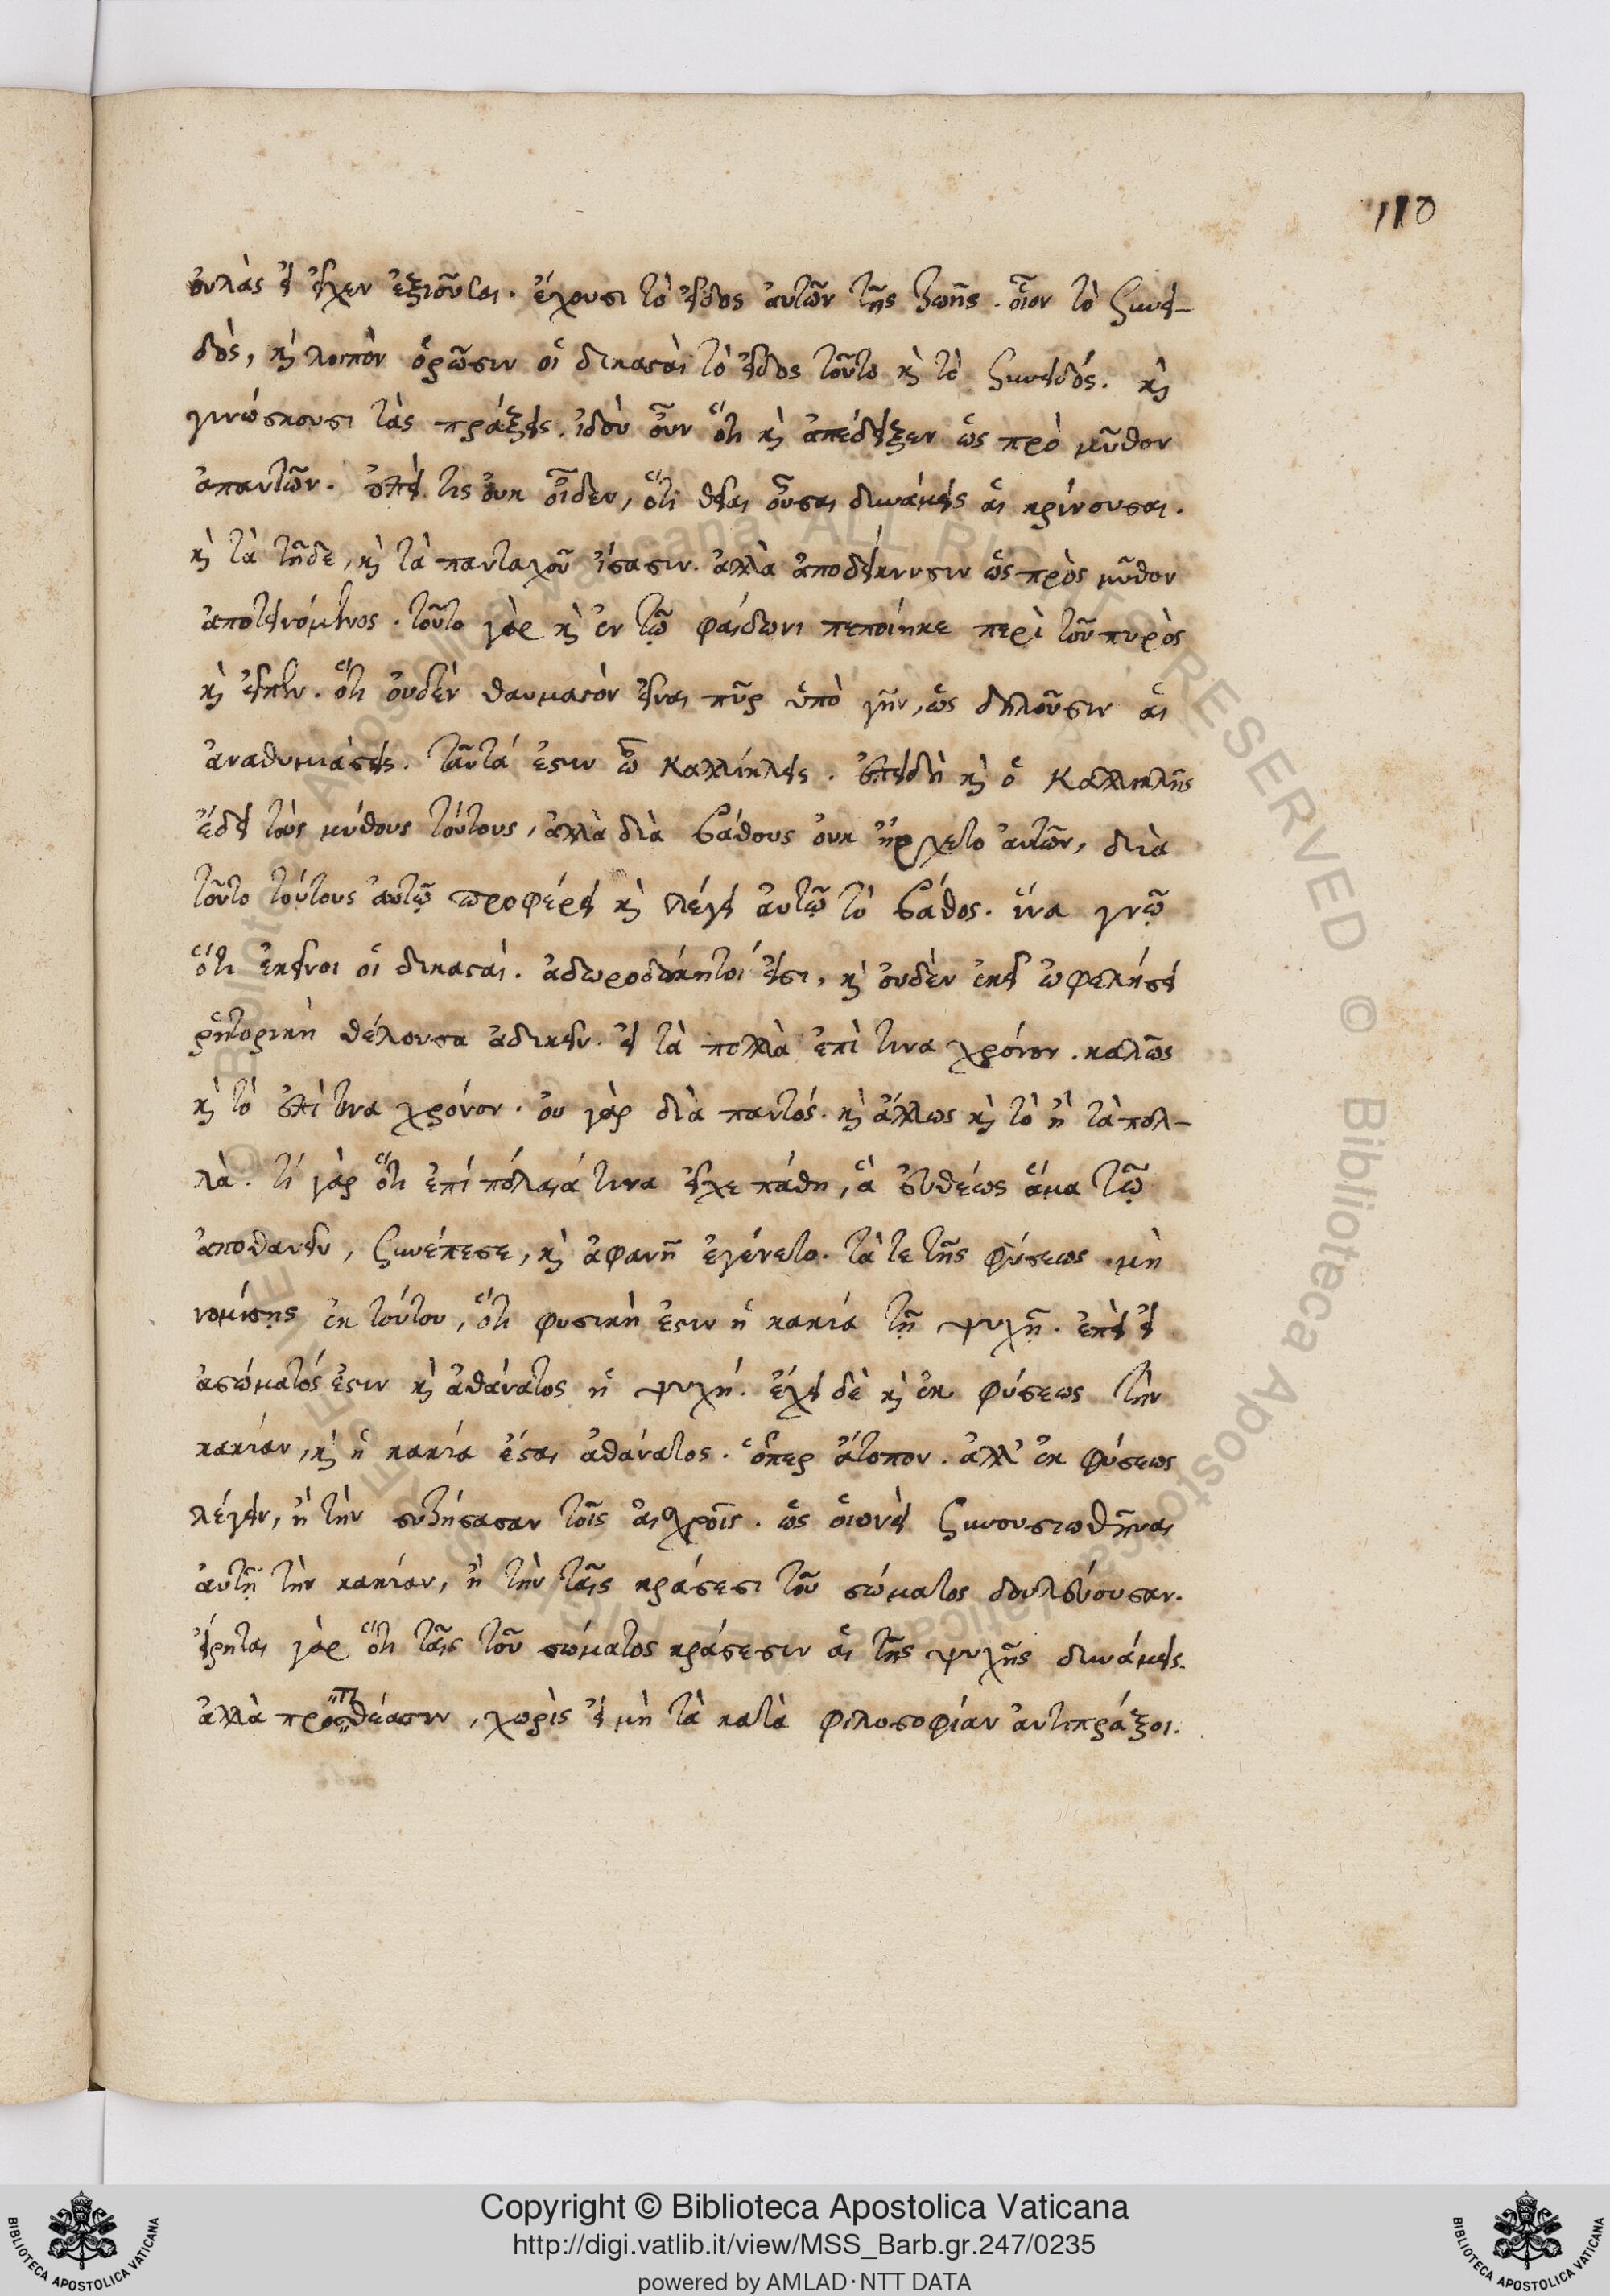 110
οὐλὰς εἰ εἶχεν ἐξιοῦσαι. ἔχουσι τὸ εἶδος αὐτῶν τῆς ζωῆς. οἷον τὸ συνει-
δὸς, καὶ λοιπὸν ὁρῶσιν οἱ δικασταὶ τὸ εἶδος τοῦτο καὶ τὸ συνειδός. καὶ
γινώσκουσι τὰς πράξεις. ἰδοὺ οὖν ὅτι καὶ ἀπέδειξεν ὡς πρὸ μῦθον
ἀπαντῶν. ἐπεὶ τις οὐκ οἶδεν, ὅτι θεῖαι οὖσαι δυνάμεις αἱ κρίνουσαι.
καὶ τὰ τῇδε, καὶ τὰ πανταχοῦ ἴσασιν. ἀλλὰ ἀποδείκνυσιν ὡς πρὸς μῦθον
ἀποτεινόμενος. τοῦτο γὰρ καὶ ἐν τῷ φαίδωνι πεποίηκε περὶ τοῦ πυρὸς
καὶ εἶπεν. ὅτι οὐδὲν θαυμαστὸν εἶναι πῦρ ὑπὸ γῆν, ὡς δηλοῦσιν αἱ
ἀναθυμιάσεις. ταῦτά ἐστιν ὦ Καλλίκλεις. ἐπειδὴ καὶ ὁ Καλλικλῆς
ἔδει τοὺς μύθους τούτους, ἀλλὰ διὰ βάθους οὐκ ἤρχετο αὐτῶν, διὰ
τοῦτο τούτους αὐτῷ προφέρει καὶ λέγει αὐτῷ τὸ βάθος. ἵνα γνῷ
ὅτι ἐκεῖνοι οἱ δικασταί. ἀδωροδόκητοί εἰσι, καὶ οὐδὲν ἐκεῖ ὠφελήσει
ῥητορικὴ θέλουσα ἀδικεῖν. εἰ τὰ πολλὰ ἐπὶ τινα χρόνον. καλῶς
καὶ τὸ ἐπὶ τινα χρόνον. οὐ γὰρ διὰ παντός. καὶ ἄλλως καὶ τὸ ἢ τὰ πολ-
λὰ. τί γὰρ ὅτι ἐπιπόλαιά τινα εἶχε πάθη, ἃ εὐθέως ἅμα τῷ
ἀποθανεῖν, συνέπεσε, καὶ ἀφανῆ ἐγένετο. τά τε τῆς φύσεως. μὴ
νομίσῃς ἐκ τούτου, ὅτι φυσικὴ ἐστιν ἡ κακία τῇ ψυχῇ. ἐπεὶ εἰ
ἀσώματός ἐστιν καὶ ἀθάνατος ἡ ψυχή. ἔχει δὲ καὶ ἐκ φύσεως τὴν
κακίαν, καὶ ἡ κακία ἔσται ἀθάνατος. ὅπερ ἄτοπον. ἀλλ' ἐκ φύσεως
λέγειν, ἢ τὴν συζήσασαν τοῖς αἰσχροῖς. ὡς οἱονεὶ συνουσιωθῆναι
αὐτῇ τὴν κακίαν, ἢ τὴν ταῖς κράσεσι τοῦ σώματος δουλεύουσαν.
εἴρηται γὰρ ὅτι ταῖς τοῦ σώματος κράσεσιν αἱ τῆς ψυχῆς δυνάμεις.
ἀλλὰ χωρὶς εἰ μὴ τὰ κατὰ φιλοσοφίαν ἀντιπράξοι.
Copyright © Biblioteca Apostolica Vaticana
http://digi.vatlib.it/view/MSS_Barb.gr.247/0235
powered by AMLAD·NTT DATA